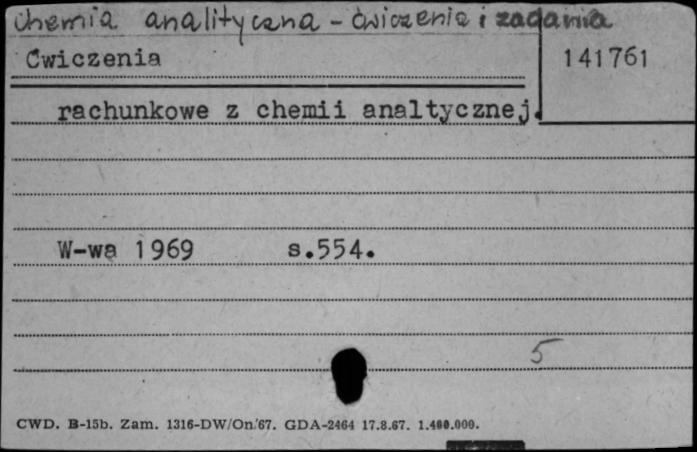 chemia analityczna - ćwiczenia i zadania
Ćwiczenia
141761
rachunkowe z chemii analtycznej.
W-wa 1969 s.554.
5
CWD. B-15b. Zam. 1316-DW/On.'67. GDA-2464 17.8.67. 1.400.000.